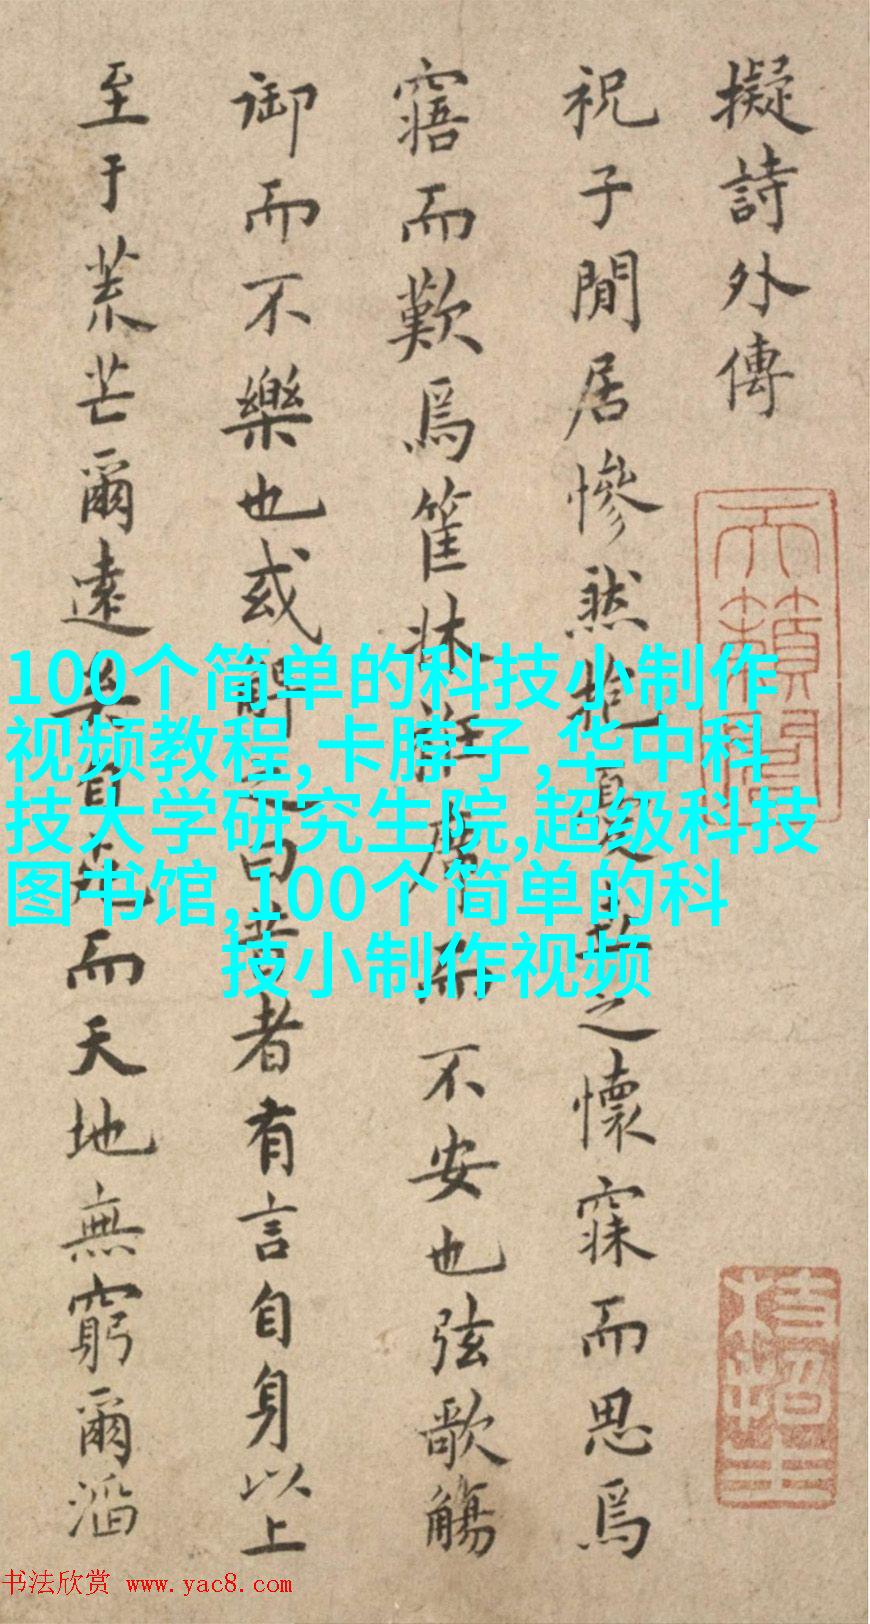 擬詩外傳
祝子閒居慘然抱之懷寐而思焉
寤而歎焉筐牀而不安也弦歌觴
御而不樂也或解之曰昔者有言自身以上
至于荒芒爾遠矣自死而天地無窮爾滔
天籟閣
枝指生
100个简单的科技小制作
视频教程,卡脖子,华中科
技大学研究生院,超级科技
图书馆,100个简单的科
技小制作视频
书法欣赏 www.yac8.com